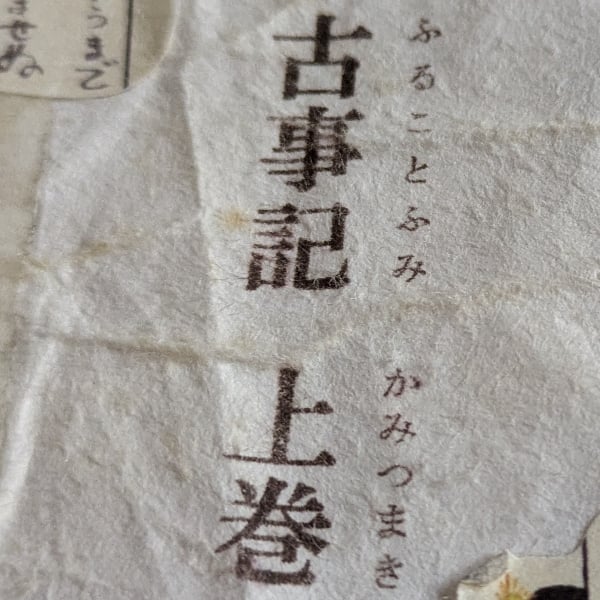 ふることふみ
古事記
かみつまき
上巻
うまで
ませぬ